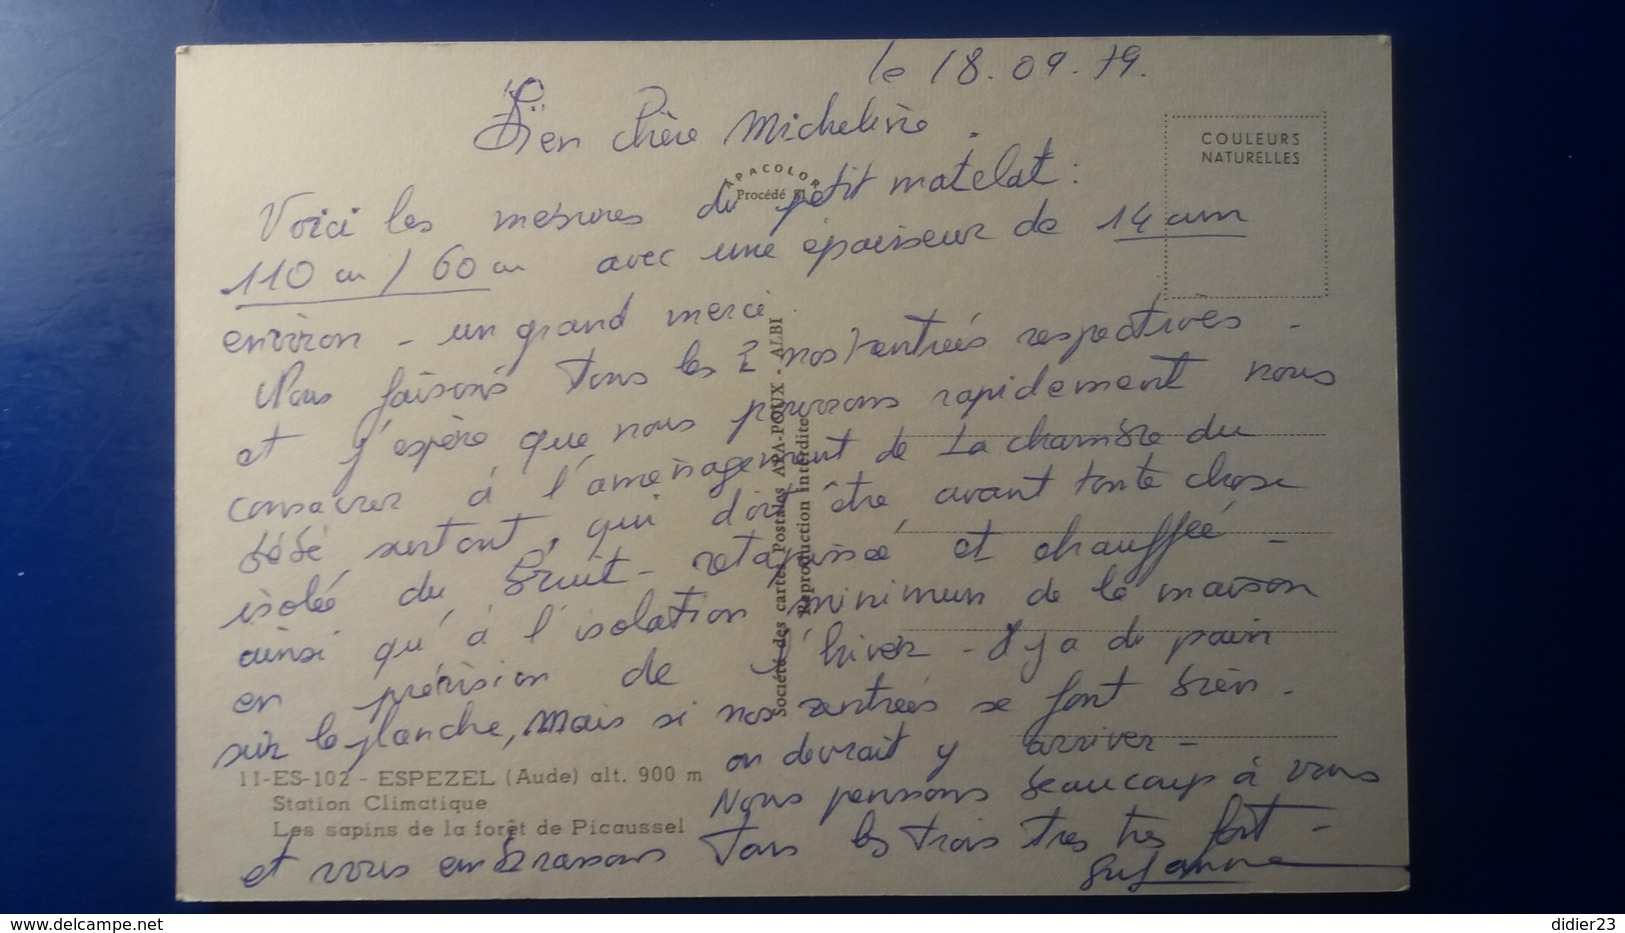 le 18.09.79.
Bien chère Micheline.
COULEURS
NATURELLES
APACOLOR
Procédé
Voici les mesures du petit matelat :
110 cm / 60 cm avec une épaisseur de 14 cm
environ - un grand merci
Nous faisons tous les 2 nos rentrées respectives -
et j'espère que nous pourrons rapidement nous
consacrer à l'aménagement de la chambre du
bébé surtout, qui doit être avant toute chose
isolée du bruit - retapissée et chauffée -
ainsi qu'à l'isolation minimum de la maison
en prévision de l'hiver - il y a du pain
sur la planche, mais si nos rentrées se font bien -
on devrait y arriver -
Nous pensons beaucoup à vous
et vous embrassons tous les trois tres tres fort -
Suzanne
Société des cartes Postales APA-POUX - ALBI
Reproduction interdite
11-ES-102 - ESPEZEL (Aude) alt. 900 m
Station Climatique
Les sapins de la forêt de Picaussel
delcampe.net
didier23